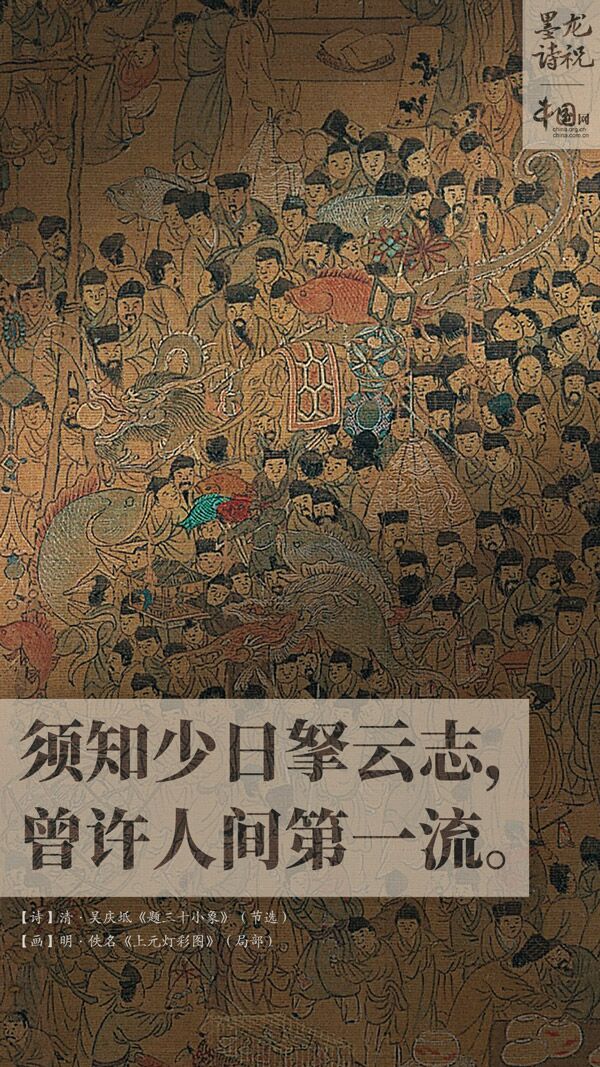 墨龙
诗祝
中国网
china.org.cn
china.com.cn
须知少日拏云志，
曾许人间第一流。
【诗】清·吴庆坻《题三十小象》（节选）
【画】明·佚名《上元灯彩图》（局部）